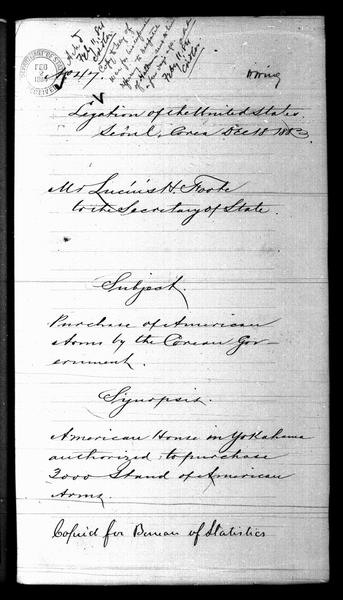 Ack'd
Feby 11, 84
No 47
Legation of the United States
Seöul, Corea Dec 18 1883
Mr Lucius H. Foote
to the Secretary of State.
Subject.
Purchase of American
Arms by the Corean Gov-
ernment.
Synopsis.
American House in Yokahama
authorized to purchase
3000 Stand of American
Arms.
Copied for Bureau of Statistics